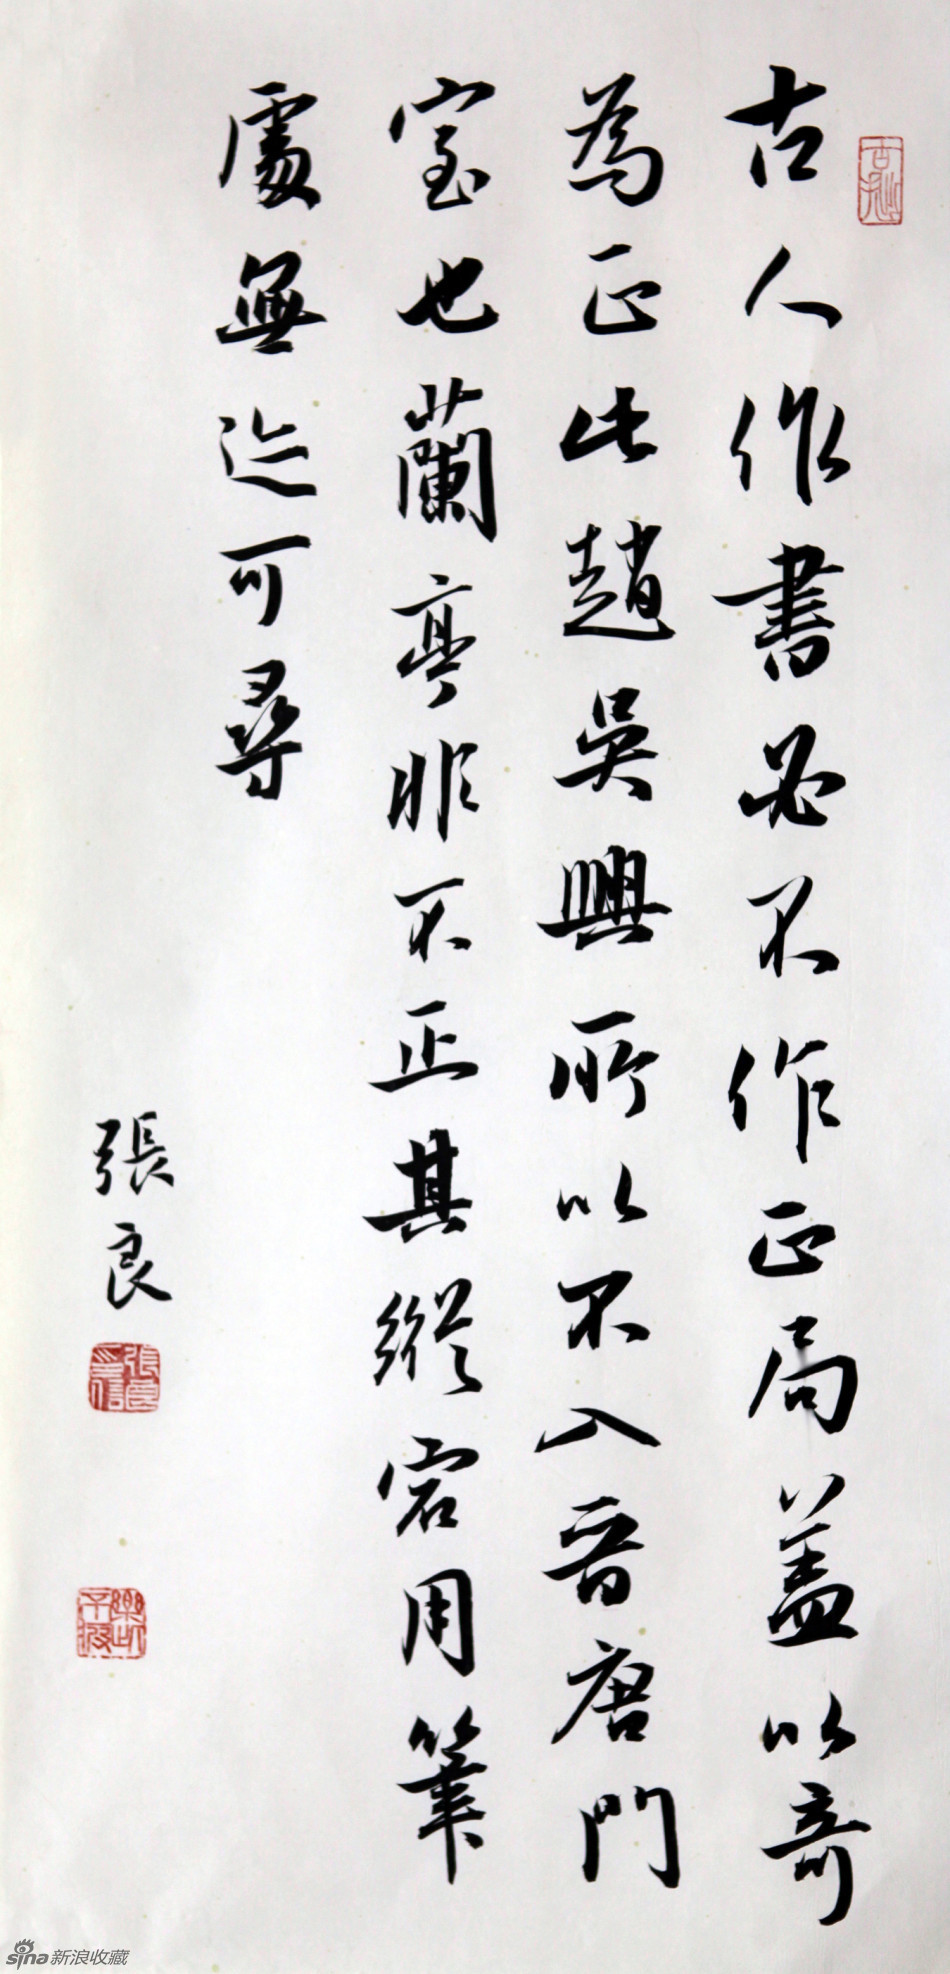 古人作書必不作正局盖以奇
為正此趙吳興所以不入晋唐門
室也蘭亭非不正其縱宕用筆
處無迹可尋
張良
sina新浪收藏